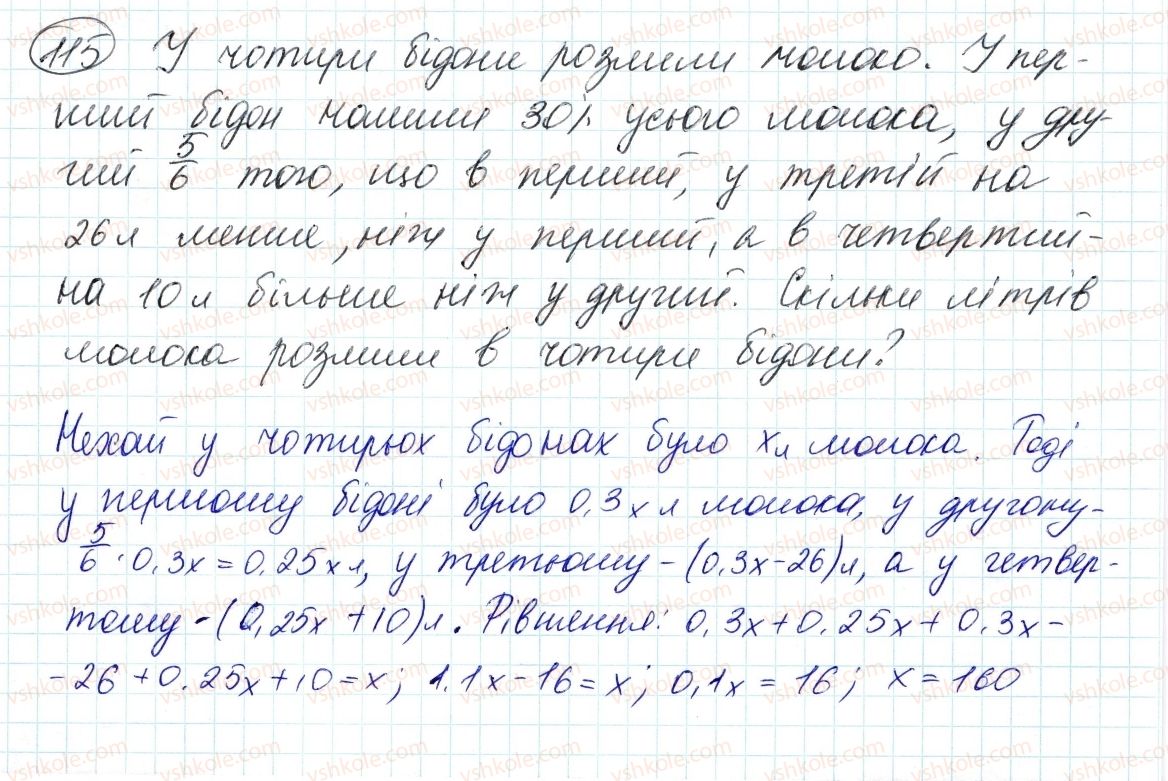 115 У чотири бідони розлили молоко. У пер-
ший бідон налили 30% усього молока, у дру-
гий 5/6 того, що в перший, у третій на
26 л менше, ніж у перший, а в четвертий -
на 10 л більше ніж у другий. Скільки літрів
молока розлили в чотири бідони?
Нехай у чотирьох бідонах було x л молока. Тоді
у першому бідоні було 0,3x л молока, у другому -
5/6 · 0,3x = 0,25x л, у третьому - (0,3x - 26) л, а у четвер-
тому - (0,25x + 10) л. Рівшення: 0,3x + 0,25x + 0,3x -
- 26 + 0,25x + 10 = x; 1,1x - 16 = x; 0,1x = 16; x = 160